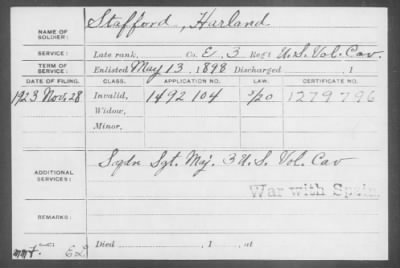 NAME OF SOLDIER: Stafford, Harland
SERVICE: Late rank, Co. E, 3 Reg't U.S. Vol. Cav.
TERM OF SERVICE: Enlisted May 13, 1898 Discharged , 1
DATE OF FILING. CLASS. APPLICATION NO. LAW. CERTIFICATE NO.
1923 Nov. 28 Invalid, 1492104 3/20 1279796
Widow,
Minor,
ADDITIONAL SERVICES: Sqdn Sgt. Maj. 3 U.S. Vol. Cav
War with Spain.
REMARKS:
Died , 1 , at